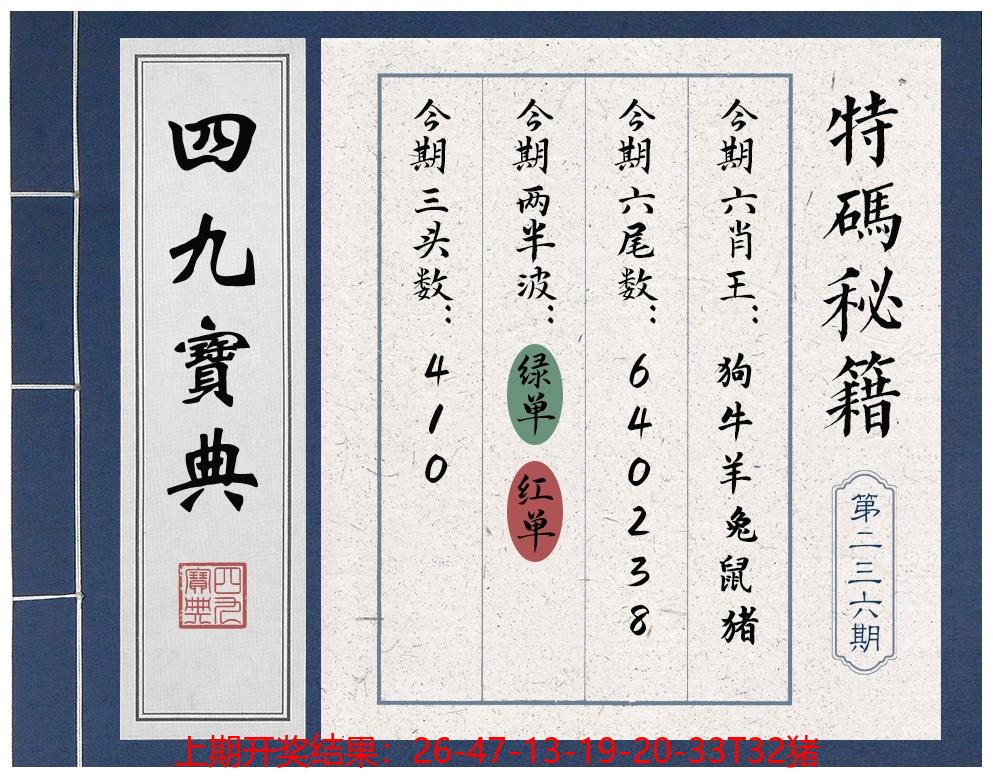 特碼秘籍
第二三六期
今期六肖王：狗牛羊兔鼠猪
今期六尾数：640238
今期两半波：绿单 红单
今期三头数：410
四九寶典
四九寶典
上期开奖结果：26-47-13-19-20-33T32猪